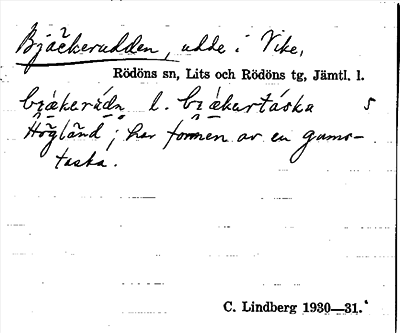 Bjäckerudden, udde i Vike,
Rödöns sn, Lits och Rödöns tg, Jämtl. l.
l. 5
Högland; har formen av en
taska.
C. Lindberg 1930—31.